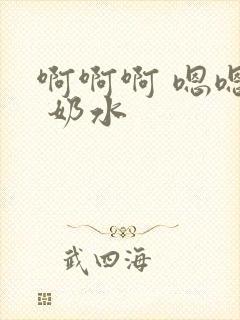 啊啊啊 嗯嗯
奶水
武四海